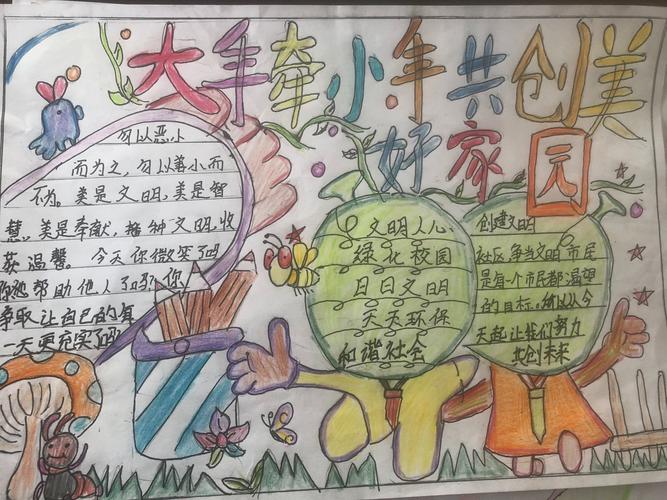 大手牵小手共创美
好家园
勿以恶小
而为之,勿以善小而
不为。美是文明,美是智
慧,美是奉献,播种文明,收
获温馨。今天你微笑了吗
你帮助他人了吗?你
争取让自己的每
一天更充实了吗
文明人心
绿化校园
日日文明
天天环保
和谐社会
创建文明
社区争当文明市民
是每个市民都渴望
的目标,所以从今
天起让我们努力
共创未来